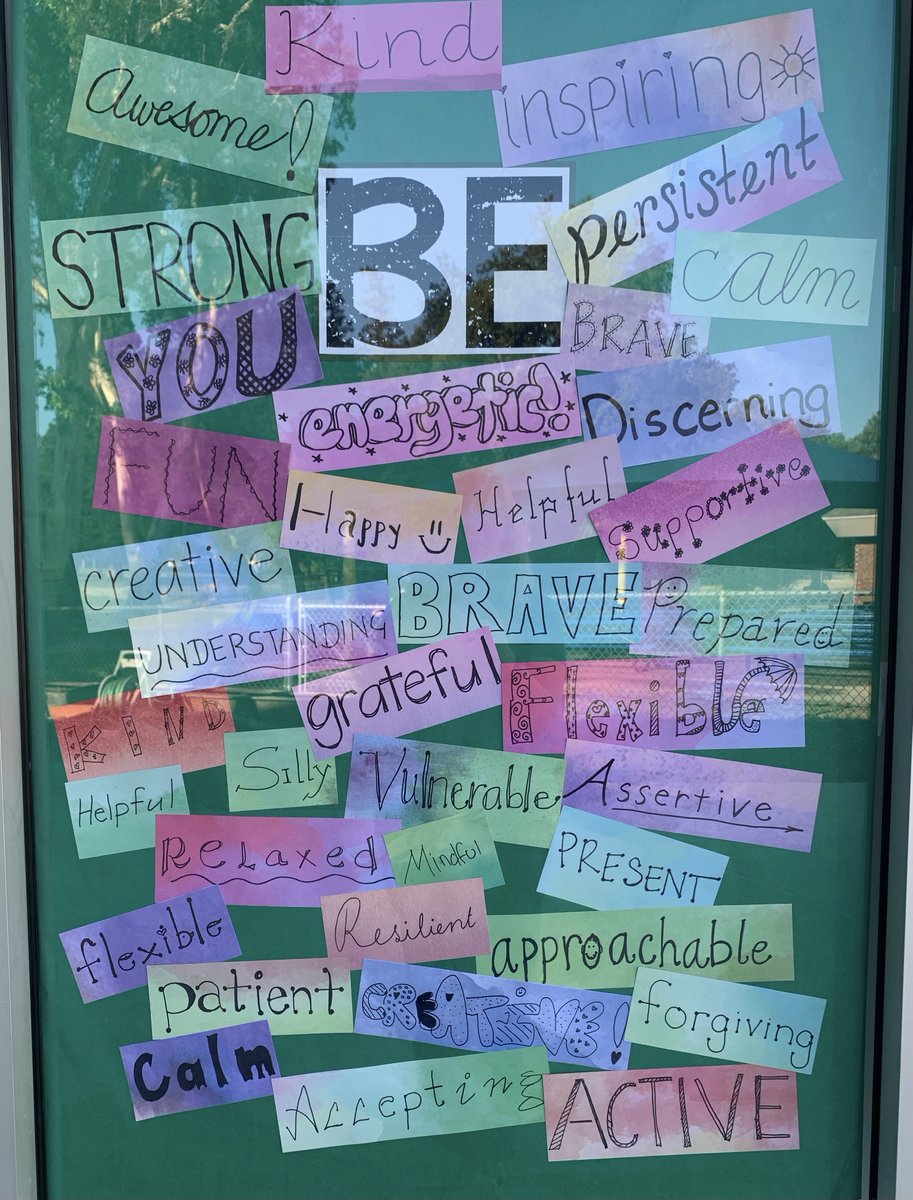 Kind
Awesome!
inspiring
persistent
STRONG
BE
Calm
YOU
BRAVE
energetic!
Discerning
FUN
Happy
Helpful
Supportive
creative
BRAVE
Prepared
UNDERSTANDING
grateful
Flexible
KIND
Silly
Vulnerable
Assertive
Helpful
Relaxed
Mindful
PRESENT
flexible
Resilient
approachable
patient
CREATIVE!
forgiving
Calm
Accepting
ACTIVE